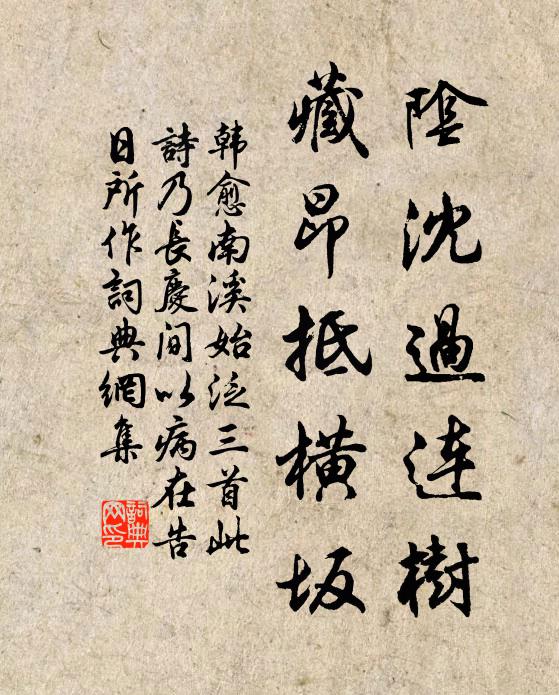 陰沈過连樹
藏昂抵橫坂
韩愈南溪始泛三首此
詩乃長慶间以病在告
日所作詞典網集
詞典網印